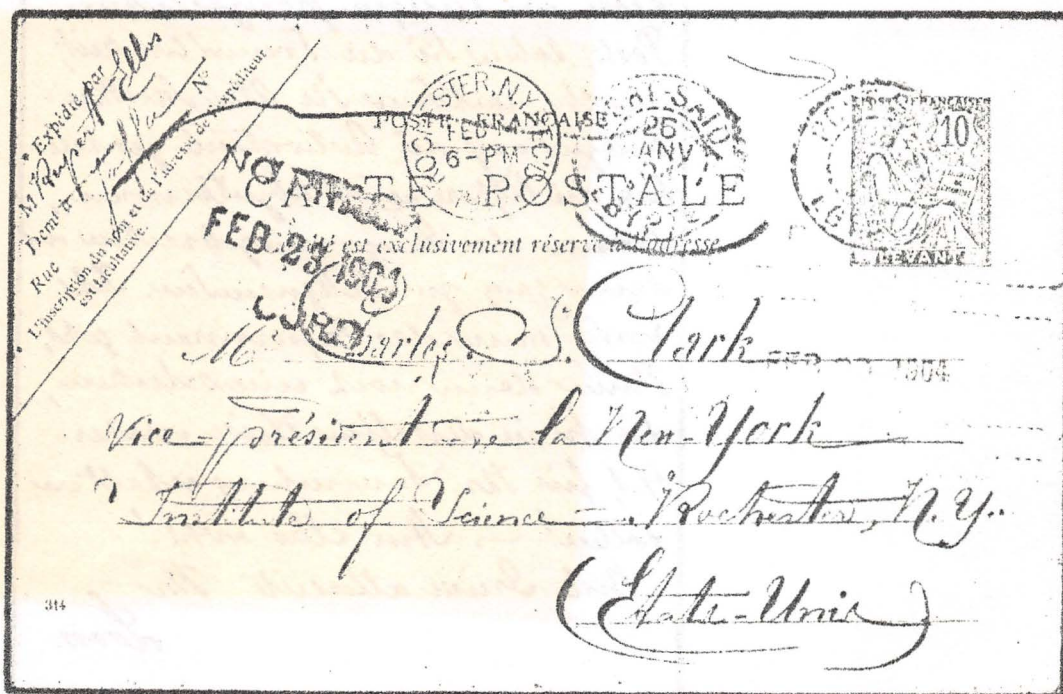 Expédié par
M
Demt à
Rue Nº
L'inscription du nom et de l'adresse de l'expéditeur
est facultative.
ROCHESTER, N.Y.
FEB
6-PM
POSTE FRANÇAISE
PORT-SAID
26
JANV
EGYPTE
POSTE FRANÇAISE
10
LEVANT
CARTE POSTALE
FEB 23 1904
est exclusivement réservé à l'adresse
M Charles S. Clark
FEB 1904
Vice-président de la New-York
Institute of Science — Rochester, N.Y.
(Etats-Unis)
314